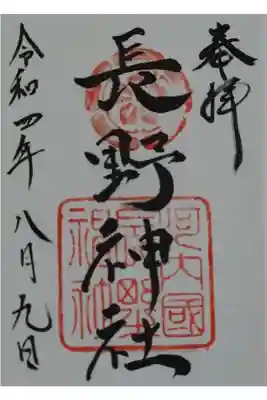 奉拝
長野神社
河内國
長野神社
令和四年八月九日